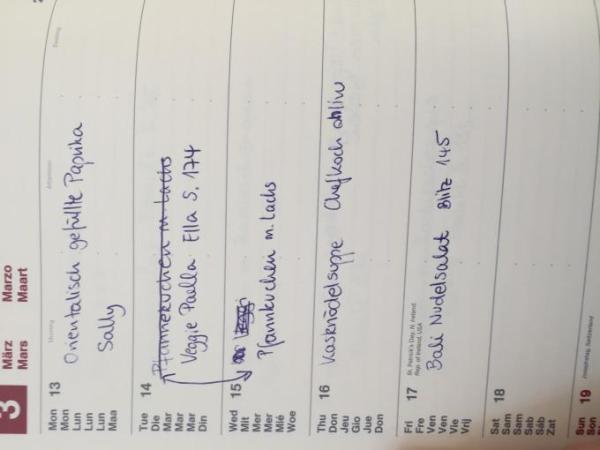 3
März Marzo
Mars Maart
Morning Afternoon Evening
Mon 13
Mon
Lun
Lun
Lun
Maa
Orientalisch gefüllte Paprika
Sally
Tue 14
Die
Mar
Mar
Mar
Din
Pfannekuchen m. Lachs
Veggie Paella Ella S. 174
Wed 15
Mit
Mer
Mer
Mié
Woe
Pfannkuchen m. Lachs
Thu 16
Don
Jeu
Gio
Jue
Don
Kasknödelsuppe Chefkoch ohliw
Fri 17
Fre
Ven
Ven
Vie
Vrij
St. Patrick's Day, N. Ireland,
Rep. of Ireland, USA
Bali Nudelsalat Blitz 145
Sat 18
Sam
Sam
Sab
Sáb
Zat
Sun 19
Son